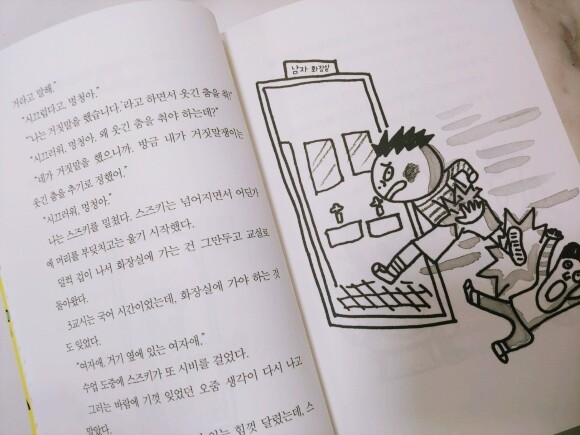 거라고 말해."
"시끄럽다고, 멍청아."
"'나는 거짓말을 했습니다.'라고 하면서 웃긴 춤을 춰!"
"시끄러워, 멍청아. 왜 웃긴 춤을 춰야 하는데?"
"네가 거짓말을 했으니까. 방금 내가 거짓말쟁이는
웃긴 춤을 추기로 정했어."
"시끄러워, 멍청아."
나는 스즈키를 밀쳤다. 스즈키는 넘어지면서 어딘가
에 머리를 부딪치고는 울기 시작했다.
덜컥 겁이 나서 화장실에 가는 건 그만두고 교실로
돌아왔다.
3교시는 국어 시간이었는데, 화장실에 가야 하는 것
도 잊었다.
"여자애, 거기 옆에 있는 여자애."
수업 도중에 스즈키가 또 시비를 걸었다.
그러는 바람에 기껏 잊었던 오줌 생각이 다시 나고
말았다.
있는 힘껏 달렸는데, 스
남자 화장실